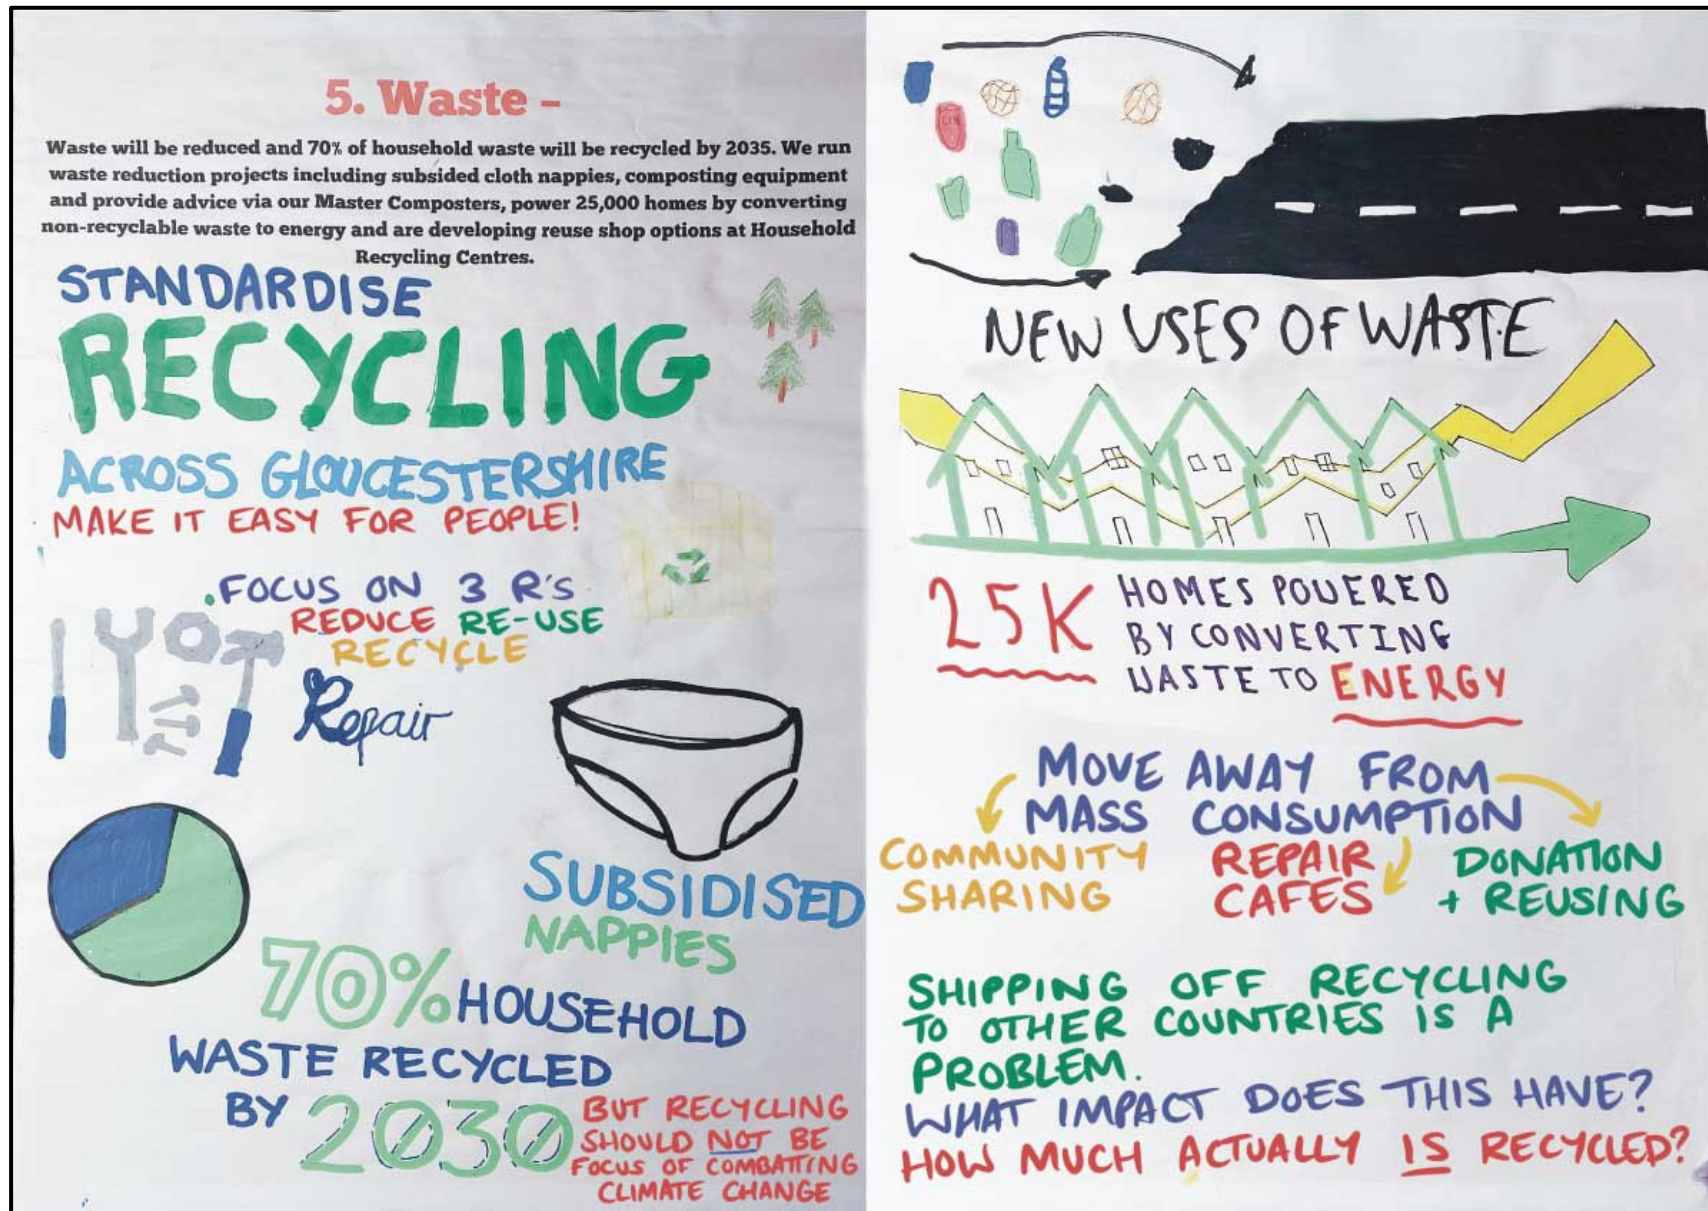 5. Waste –
Waste will be reduced and 70% of household waste will be recycled by 2035. We run
waste reduction projects including subsided cloth nappies, composting equipment
and provide advice via our Master Composters, power 25,000 homes by converting
non-recyclable waste to energy and are developing reuse shop options at Household
Recycling Centres.
STANDARDISE
RECYCLING
ACROSS GLOUCESTERSHIRE
MAKE IT EASY FOR PEOPLE!
. FOCUS ON 3 R'S
REDUCE RE-USE
RECYCLE
Repair
SUBSIDISED
NAPPIES
70% HOUSEHOLD
WASTE RECYCLED
BY 2030
BUT RECYCLING
SHOULD NOT BE
FOCUS OF COMBATTING
CLIMATE CHANGE
NEW USES OF WASTE
25K HOMES POWERED
BY CONVERTING
WASTE TO ENERGY
MOVE AWAY FROM
MASS CONSUMPTION
COMMUNITY
SHARING
REPAIR
CAFES
DONATION
+ REUSING
SHIPPING OFF RECYCLING
TO OTHER COUNTRIES IS A
PROBLEM.
WHAT IMPACT DOES THIS HAVE?
HOW MUCH ACTUALLY IS RECYCLED?